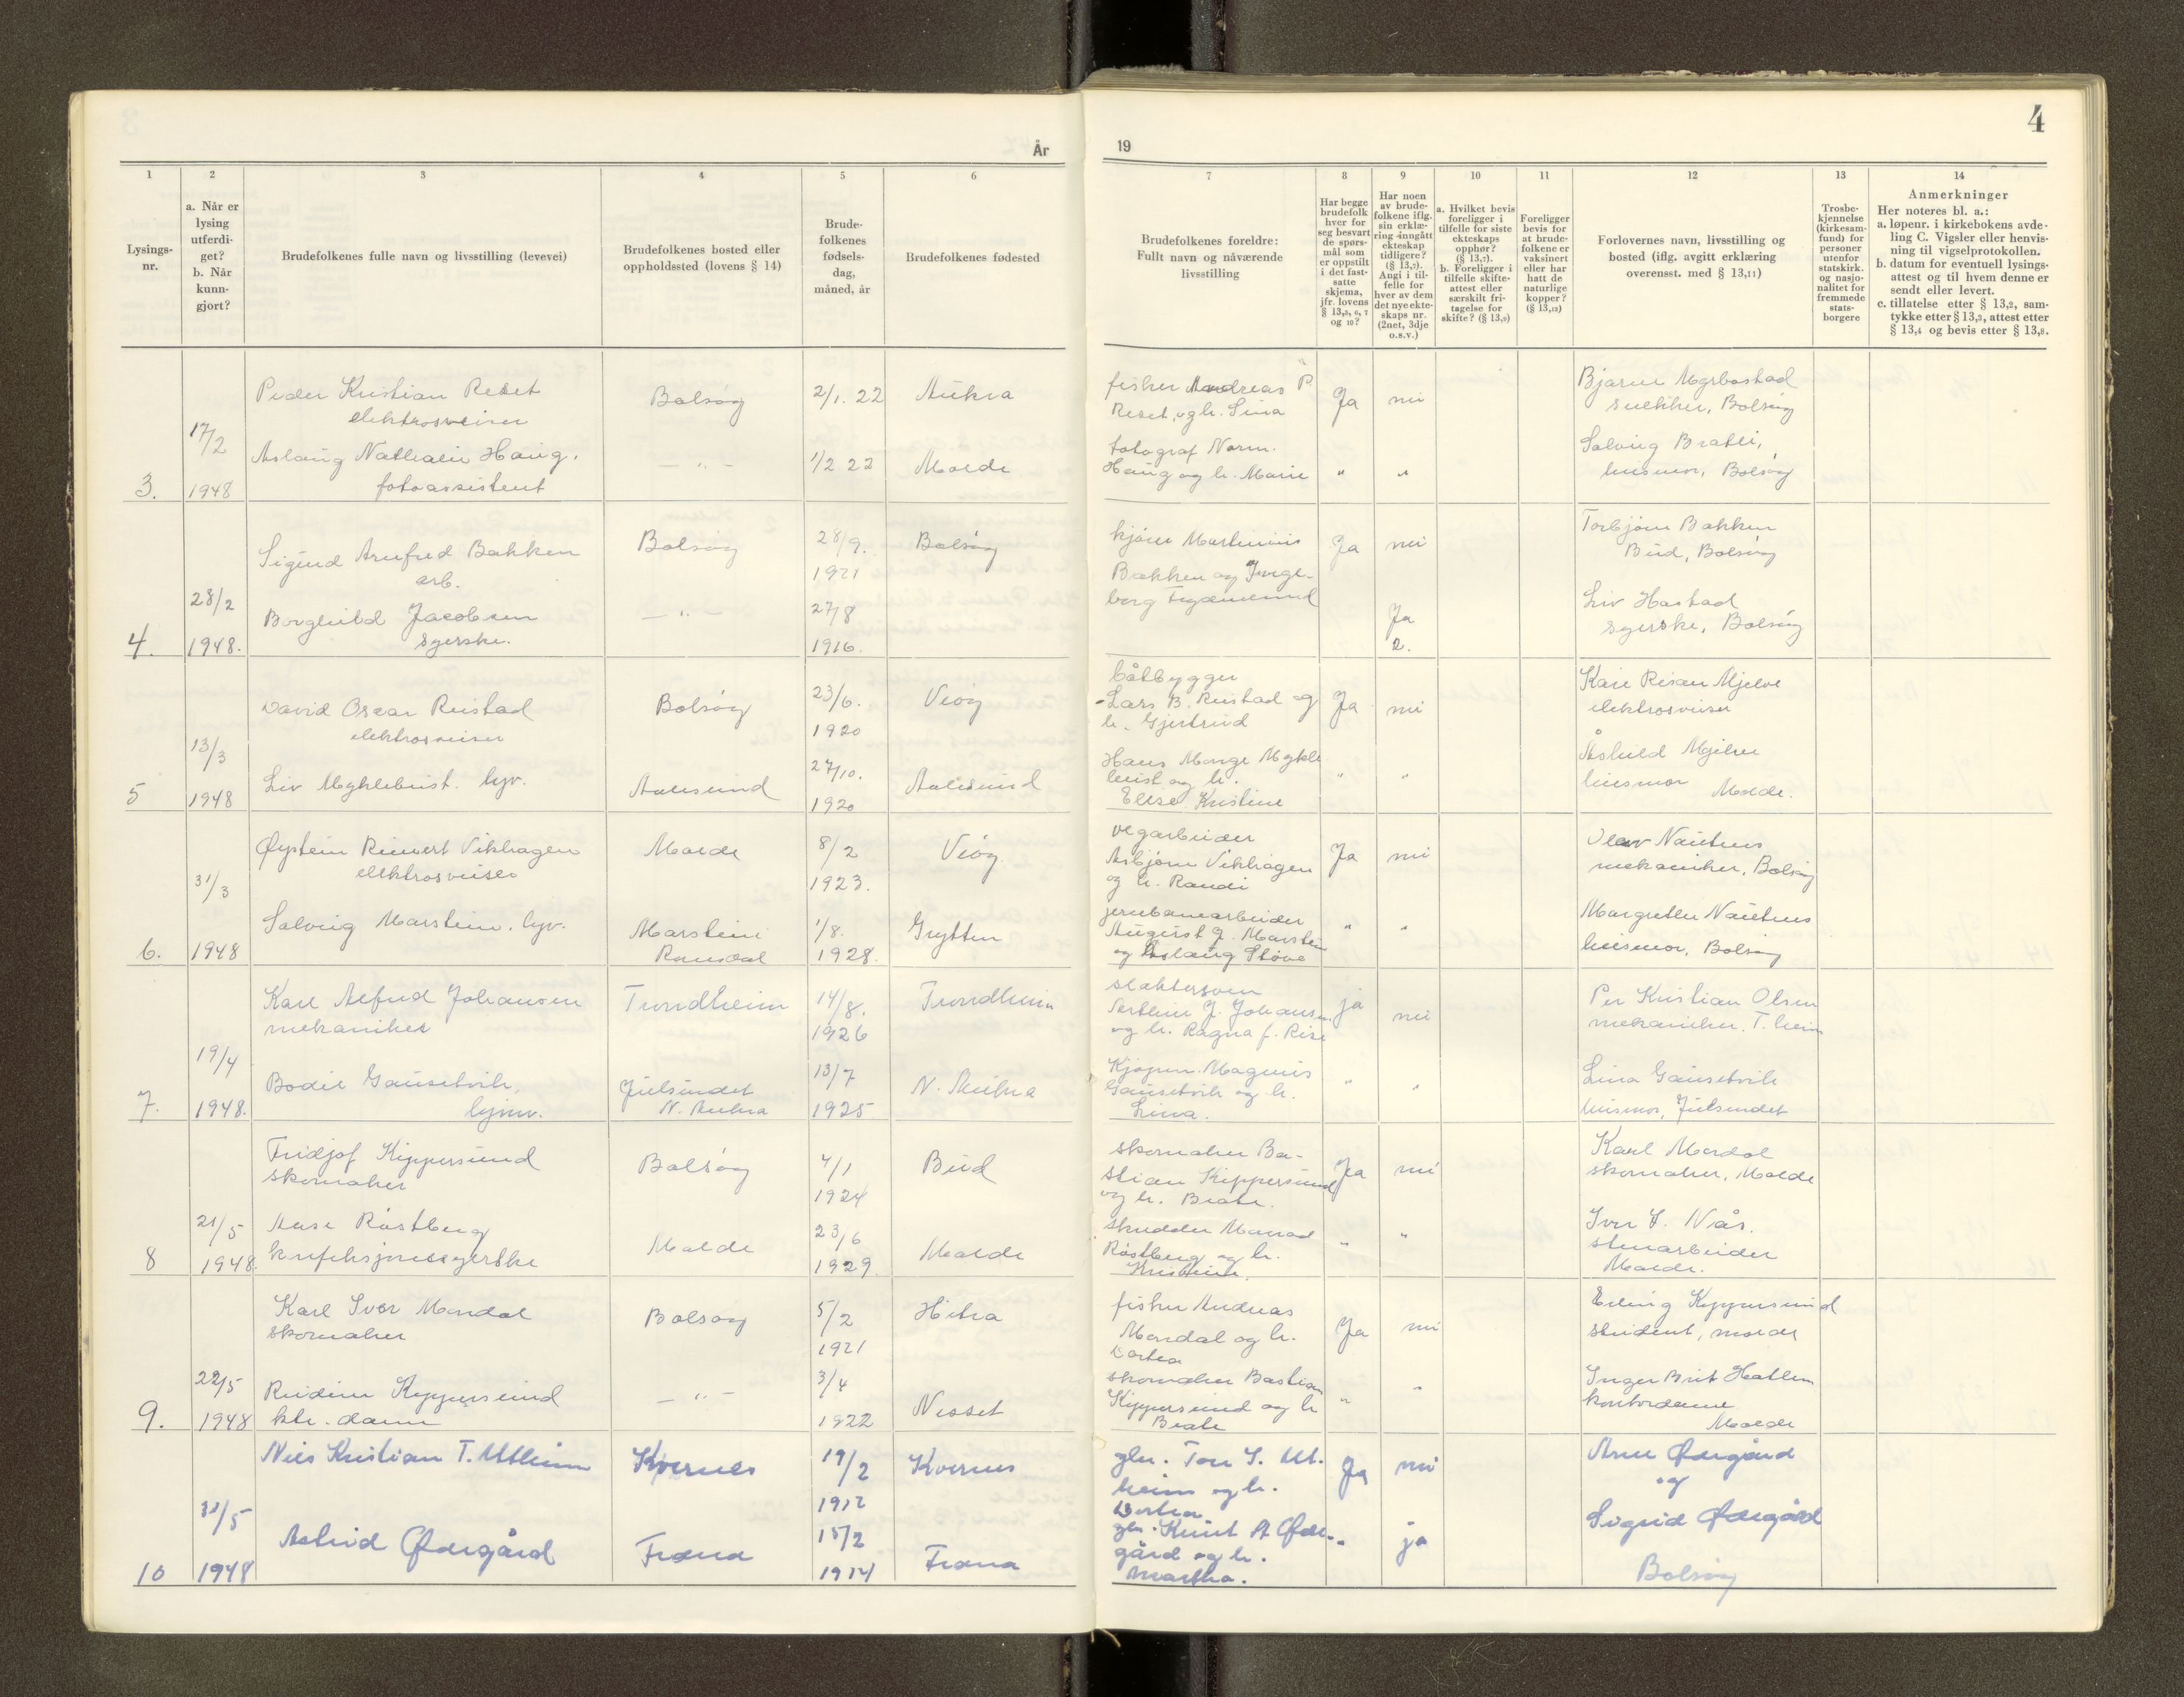 4
År
19
1
2
3
4
5
6
7
8
9
10
11
12
13
14
Lysings-
nr.
a. Når er
lysing
utferdi-
get?
b. Når
kunn-
gjort?
Brudefolkenes fulle navn og livsstilling (levevei)
Brudefolkenes bosted eller
oppholdssted (lovens § 14)
Brude-
folkenes
fødsels-
dag,
måned, år
Brudefolkenes fødested
Brudefolkenes foreldre:
Fullt navn og nåværende
livsstilling
Har begge
brudefolk
hver for
seg besvart
de spørs-
mål som
er oppstilt
i det fast-
satte
skjema,
jfr. lovens
§ 13,5, 6, 7
og 10?
Har noen
av brude-
folkene iflg.
sin erklæ-
ring inngått
ekteskap
tidligere?
(§ 13,7).
Angi i til-
felle for
hver av dem
det nye ekte-
skaps nr.
(2net, 3dje
o.s.v.)
a. Hvilket bevis
foreligger i
tilfelle for siste
ekteskaps
opphør?
(§ 13,7).
b. Foreligger i
tilfelle skifte-
attest eller
særskilt fri-
tagelse for
skifte? (§ 13,9)
Foreligger
bevis for
at brude-
folkene er
vaksinert
eller har
hatt de
naturlige
kopper?
(§ 13,12)
Forlovernes navn, livsstilling og
bosted (iflg. avgitt erklæring
overensst. med § 13,11)
Trosbe-
kjennelse
(kirkesam-
fund) for
personer
utenfor
statskirk.
og nasjo-
nalitet for
fremmede
stats-
borgere
Anmerkninger
Her noteres bl. a.:
a. løpenr. i kirkebokens avde-
ling C. Vigsler eller henvis-
ning til vigselprotokollen.
b. datum for eventuell lysings-
attest og til hvem denne er
sendt eller levert.
c. tillatelse etter § 13,2, sam-
tykke etter § 13,3, attest etter
§ 13,4 og bevis etter § 13,8.
3.
17/2
1948
Peder Kristian Reset
elektrosveiser
Bolsøy
2/1. 22
Aukra
fisker Andreas P.
Reset og h. Lina
Ja
nei
Bjarne
snekker, Bolsøy
Aslaug Nathalie Haug.
fotoassistent
— " —
1/2 22
Molde
fotograf Norm.
Haug og h. Marie
"
"
Solveig Bratli,
husmor, Bolsøy
4.
28/2
1948.
Sigurd Arnfred Bakken
arb.
Bolsøy
28/9.
1921
Bolsøy
Martinius
Bakken og Inge-
borg
Ja
nei
Torbjørn Bakken
Bud, Bolsøy
Borghild Jacobsen
syerske.
— " —
27/8
1916.
Ja
2.
Liv Hastad
syerske, Bolsøy
5
13/3
1948
David Oscar Reistad
elektrosveiser
Bolsøy
23/6.
1920
Veøy
båtbygger
Lars B. Reistad og
h. Gjertrud
Ja
nei
Kåre Mjelve
elektrosveiser
Liv Myklebust. hjv.
Aalesund
27/10.
1920
Aalesund
Hans Mykle
bust og h.
Elise Kristine
"
"
Åshild Mjelve
husmor Molde.
6.
31/3
1948
Øystein Vikhagen
elektrosveiser
Molde
8/2
1923.
Veøy
vegarbeider
Asbjørn Vikhagen
og h. Randi
Ja
nei
Olav
mekaniker, Bolsøy
Solveig Marstein. hjv.
Marstein
Romsdal
1/8.
1928.
Grytten
jernbanearbeider
August J. Marstein
og Aslaug Støve
"
"
Margrethe
husmor, Bolsøy
7.
19/4
1948.
Karl Alfred Johansen
mekaniker
Trondheim
14/8.
1926
Trondheim
slaktersven
J. Johansen
og h. Ragna f. Rise
ja
nei
Per Kristian Olsen
mekaniker, T.heim
Bodil Gausetvik,
hjmv.
Julsundet
N. Aukra
13/7
1925
N. Aukra
Kjøpm. Magnus
Gausetvik og h.
Lina.
"
"
Lina Gausetvik
husmor, Julsundet
8
21/5
1948.
Fridjof Kippersund
skomaker
Bolsøy
4/1
1924
Bud
skomaker Ba-
stian Kippersund
og h. Beate.
Ja
nei
Karl Mordal
skomaker, Molde
Aase Røstberg
konfeksjonssyerske
Molde
23/6
1929.
Molde
skredder
Røstberg og h.
Kristine.
"
"
Iver Nås.
stenarbeider
Molde.
9.
22/5
1948
Karl Iver Mordal
skomaker
Bolsøy
5/2
1921
Hitra
fisker Andreas
Mordal og h.
Dortea
Ja
nei
Erling Kyppersund
student, molde
Reidun Kyppersund
ktr. dame
— " —
3/4
1922
Nesset
skomaker Bastian
Kippersund og h
Beate
"
"
Inger Brit Hatlen
kontordame
Molde
10
31/5
1948
Nils Kristian T. Utheim
Kvernes
19/2
1912
Kvernes
gbr. Tore S. Ut.
heim og h.
Dortea
Ja
nei
Arne Ødegård
og
Astrid Ødegård
Fræna
15/2
1914
Fræna
gbr. Knut A Øde-
gård og h.
Martha.
"
ja
Sigrid Ødegård
Bolsøy